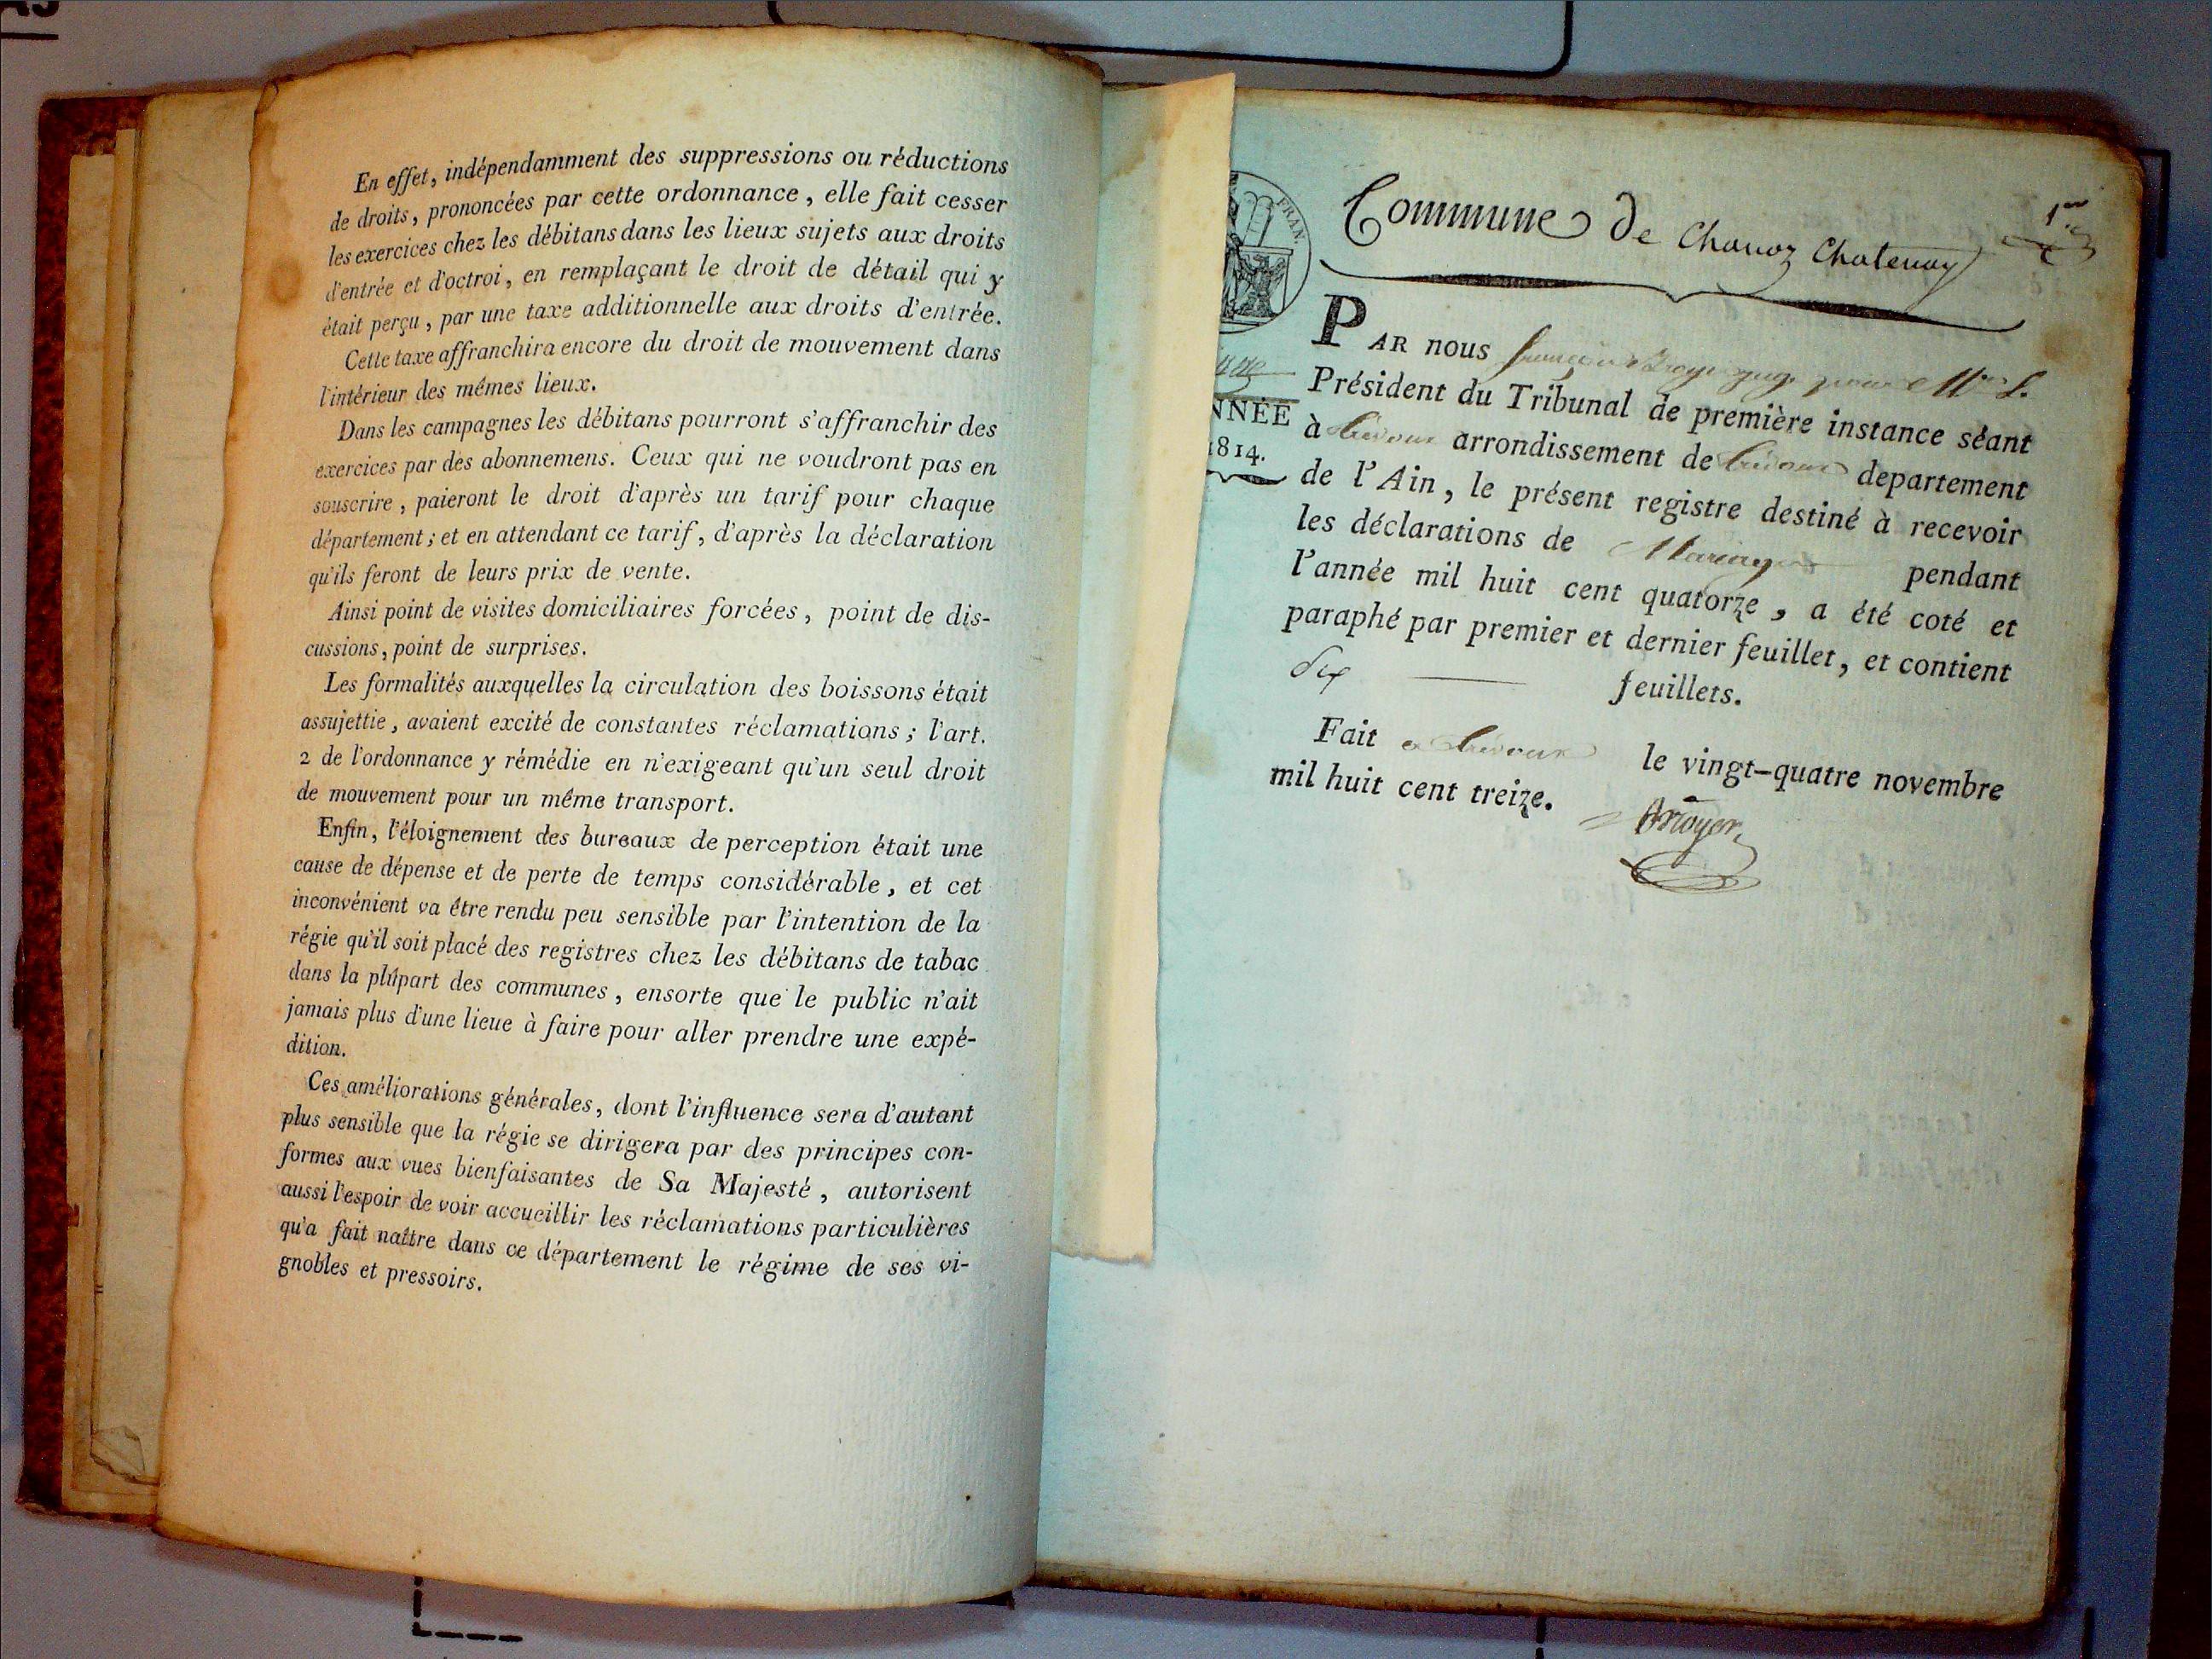 En effet, indépendamment des suppressions ou réductions
de droits, prononcées par cette ordonnance, elle fait cesser
les exercices chez les débitans dans les lieux sujets aux droits
d'entrée et d'octroi, en remplaçant le droit de détail qui y
était perçu, par une taxe additionnelle aux droits d'entrée.
Cette taxe affranchira encore du droit de mouvement dans
l'intérieur des mêmes lieux.
Dans les campagnes les débitans pourront s'affranchir des
exercices par des abonnemens. Ceux qui ne voudront pas en
souscrire, paieront le droit d'après un tarif pour chaque
département; et en attendant ce tarif, d'après la déclaration
qu'ils feront de leurs prix de vente.
Ainsi point de visites domiciliaires forcées, point de dis-
cussions, point de surprises.
Les formalités auxquelles la circulation des boissons était
assujettie, avaient excité de constantes réclamations; l'art.
2 de l'ordonnance y rémédie en n'exigeant qu'un seul droit
de mouvement pour un même transport.
Enfin, l'éloignement des bureaux de perception était une
cause de dépense et de perte de temps considérable, et cet
inconvénient va être rendu peu sensible par l'intention de la
régie qu'il soit placé des registres chez les débitans de tabac
dans la plûpart des communes, ensorte que le public n'ait
jamais plus d'une lieue à faire pour aller prendre une expé-
dition.
Ces améliorations générales, dont l'influence sera d'autant
plus sensible que la régie se dirigera par des principes con-
formes aux vues bienfaisantes de Sa Majesté, autorisent
aussi l'espoir de voir accueillir les réclamations particulières
qu'a fait naître dans ce département le régime de ses vi-
gnobles et pressoirs.
FRAN.
Commune de Chanoz Chatenay
1er
NNÉE
1814.
PAR nous françois
Président du Tribunal de première instance séant
à trévoux arrondissement de trévoux departement
de l'Ain, le présent registre destiné à recevoir
les déclarations de Mariages pendant
l'année mil huit cent quatorze, a été coté et
paraphé par premier et dernier feuillet, et contient
dix feuillets.
Fait a trévoux le vingt-quatre novembre
mil huit cent treize.